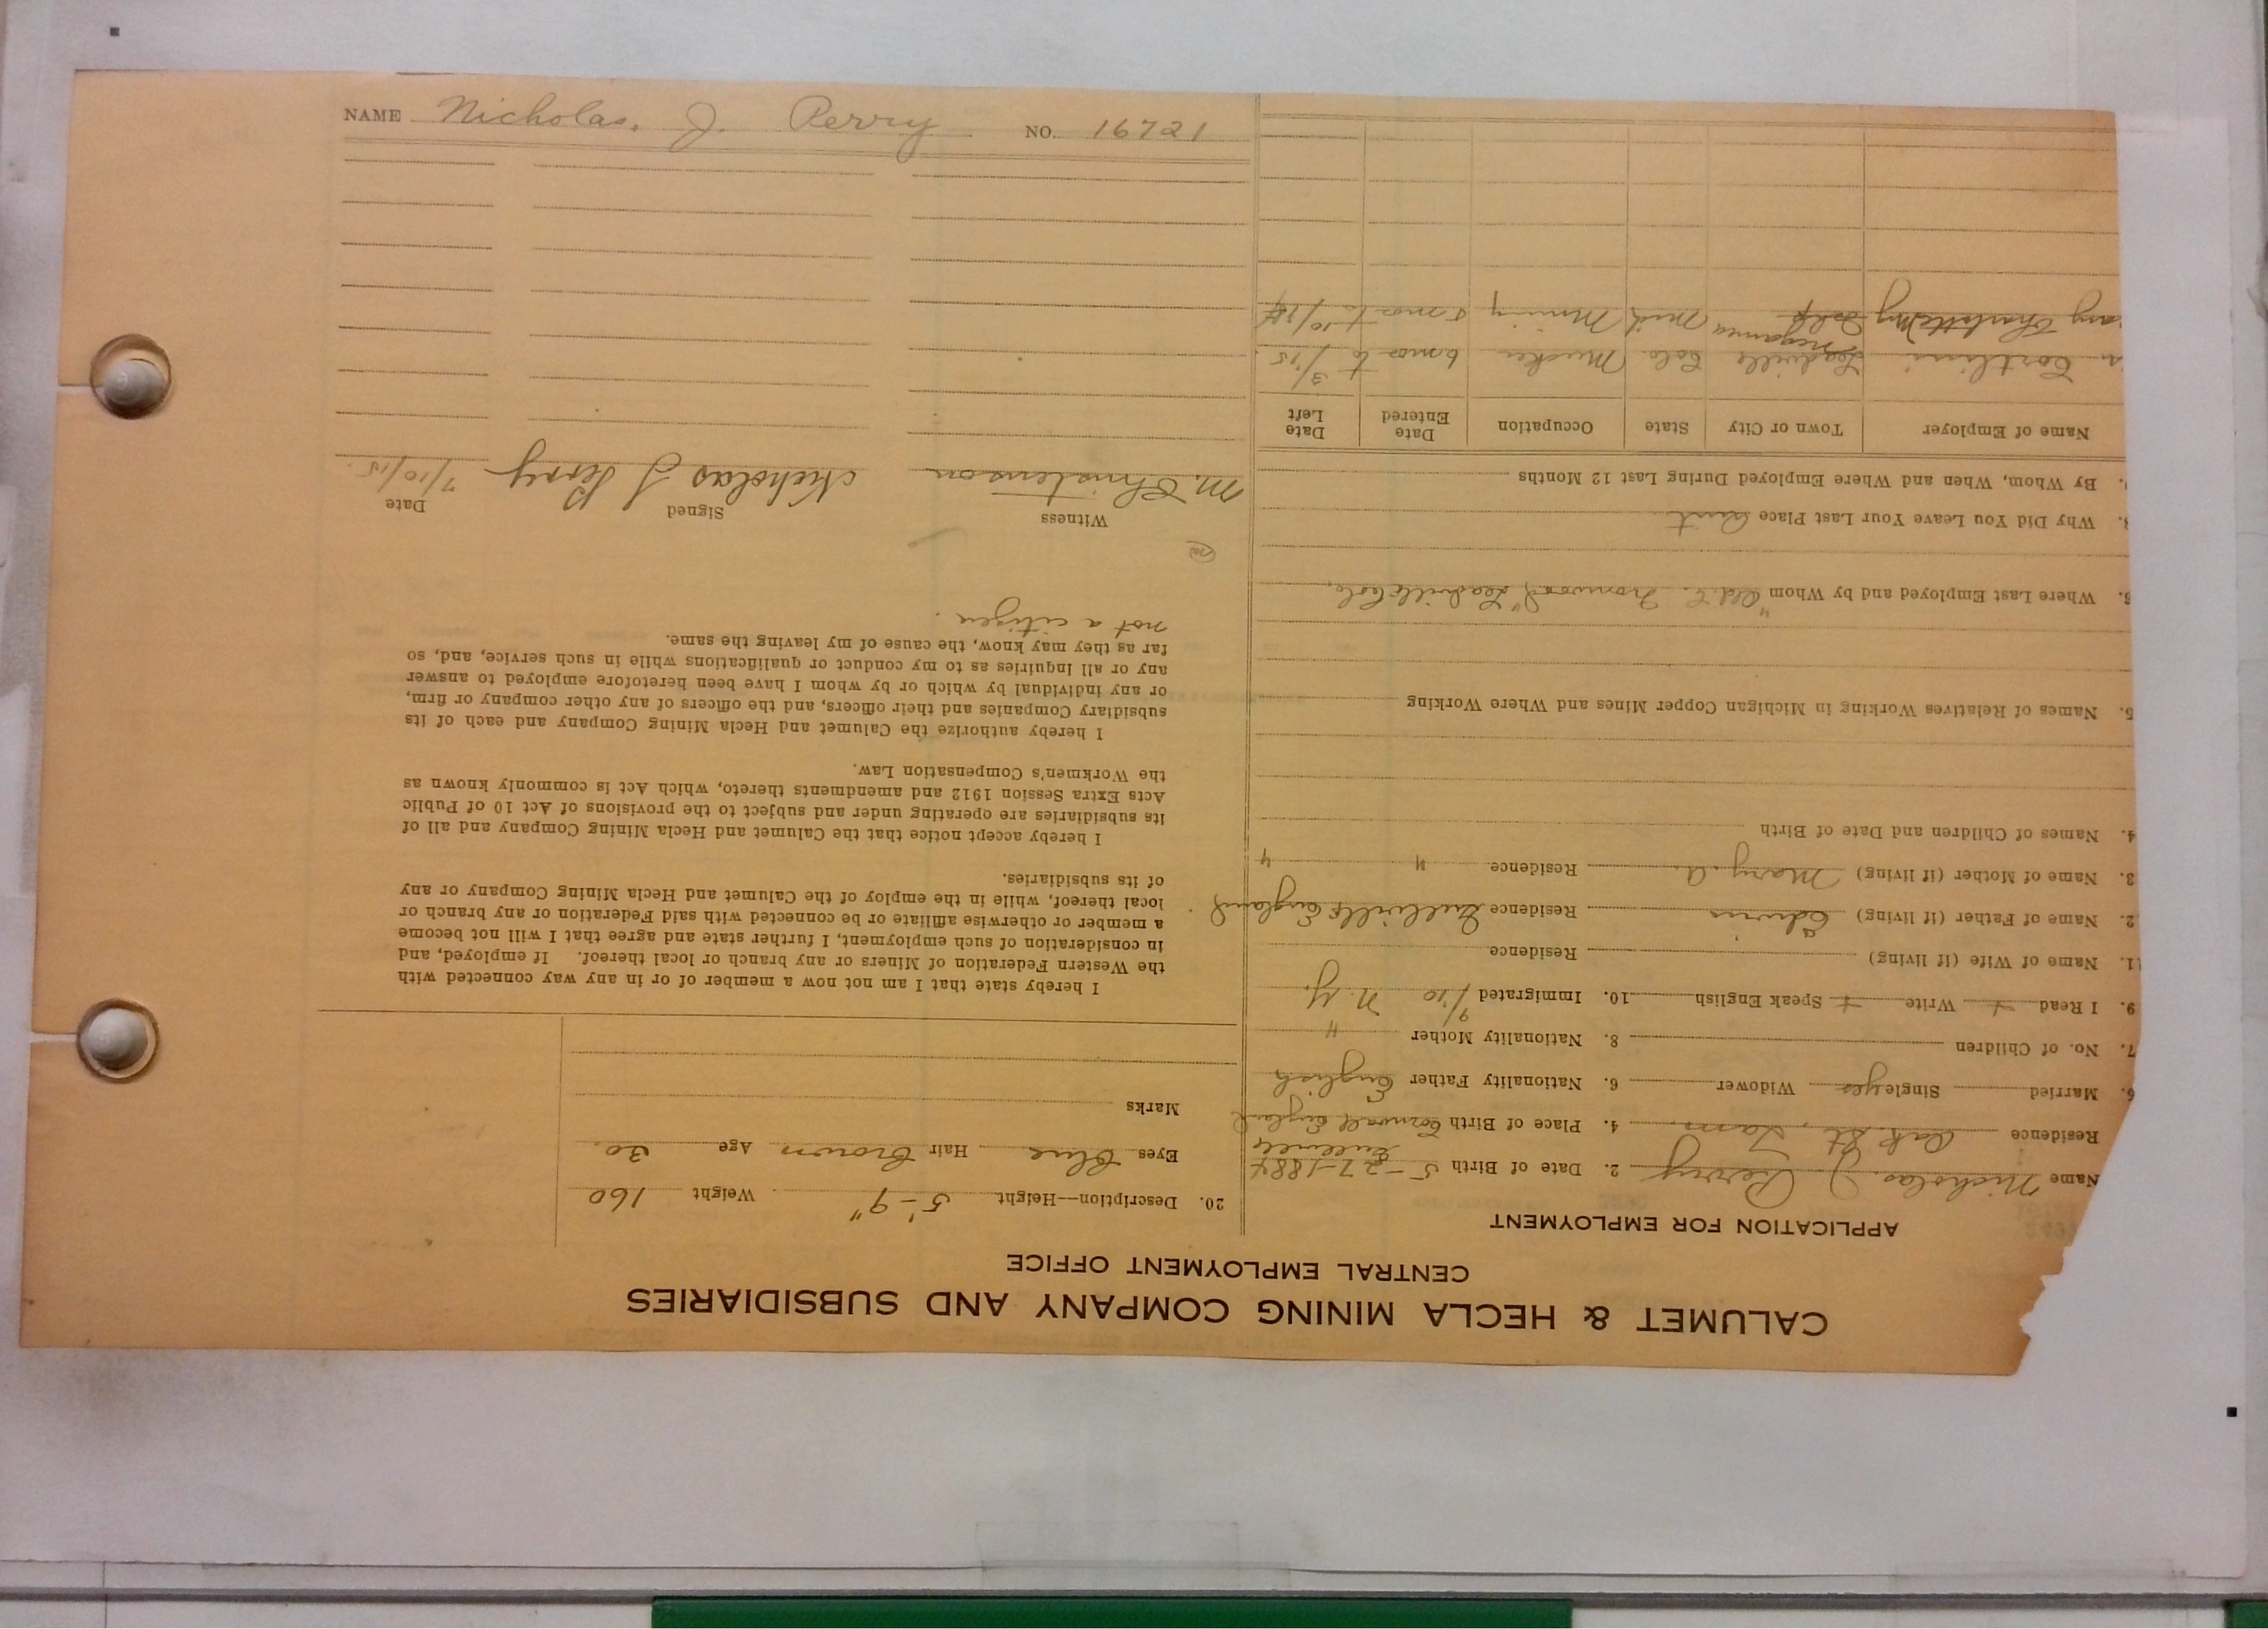 NAME Nicholas. J. Perry NO. 16721
CALUMET & HECLA MINING COMPANY AND SUBSIDIARIES
CENTRAL EMPLOYMENT OFFICE
APPLICATION FOR EMPLOYMENT
Name Nicholas. J. Perry 2. Date of Birth 5-27-1884
Residence Oak St, 4. Place of Birth Cornwall England
6. Married Single yes Widower 6. Nationality Father English
7. No. of Children 8. Nationality Mother "
9. I Read + Write + Speak English 10. Immigrated 9/10 N.Y.
11. Name of Wife (if living) Residence
2. Name of Father (if living) Edwin Residence England
3. Name of Mother (if living) Mary. A. Residence " "
4. Names of Children and Date of Birth
5. Names of Relatives Working in Michigan Copper Mines and Where Working
6. Where Last Employed and by Whom Ironwood, Leadville Colo.
8. Why Did You Leave Your Last Place Quit
. By Whom, When and Where Employed During Last 12 Months
Name of Employer Town or City State Occupation Date Entered Date Left
Leadville Colo Mucker 6 mos to 3/15
Charlotte Mich Mining 5 mos to 10/14
20. Description—Height 5'-9" Weight 160
Eyes Blue Hair Brown Age 30.
Marks
I hereby state that I am not now a member of or in any way connected with
the Western Federation of Miners or any branch or local thereof. If employed, and
in consideration of such employment, I further state and agree that I will not become
a member or otherwise affiliate or be connected with said Federation or any branch or
local thereof, while in the employ of the Calumet and Hecla Mining Company or any
of its subsidiaries.
I hereby accept notice that the Calumet and Hecla Mining Company and all of
its subsidiaries are operating under and subject to the provisions of Act 10 of Public
Acts Extra Session 1912 and amendments thereto, which Act is commonly known as
the Workmen's Compensation Law.
I hereby authorize the Calumet and Hecla Mining Company and each of its
subsidiary Companies and their officers, and the officers of any other company or firm,
or any individual by which or by whom I have been heretofore employed to answer
any or all inquiries as to my conduct or qualifications while in such service, and, so
far as they may know, the cause of my leaving the same.
not a citizen.
Witness Signed Date
M. Christenson Nicholas J Perry 7/10/15